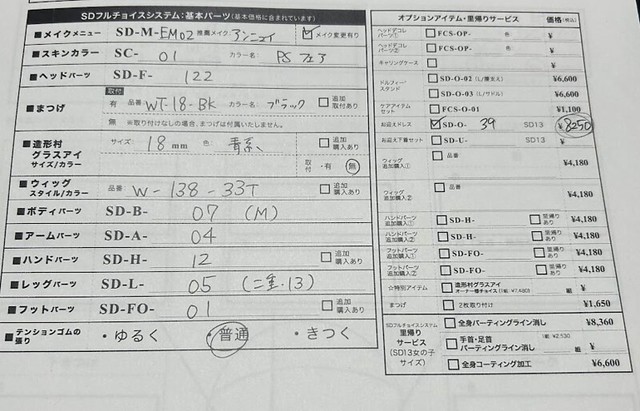 SDフルチョイスシステム:基本パーツ(基本価格に含まれています)
■メイクメニュー SD-M-EM02 推奨メイク アンニュイ ☑メイク変更有り
■スキンカラー SC- 01 カラー名: PSフェア
■ヘッドパーツ SD-F- 122
■まつげ
取付
有 品番 WT-18-BK カラー名: ブラック □追加取付あり
無 ※取り付けなしの場合、まつげは付属いたしません。
■造形村グラスアイ サイズ/カラー
サイズ: 18mm 色 青系 □追加購入あり
取付 ・有 ・無
■ウィッグ スタイル/カラー 品番 W-138-33T □追加購入あり
■ボディパーツ SD-B- 07 (M)
■アームパーツ SD-A- 04
■ハンドパーツ SD-H- 12 □追加購入あり
■レッグパーツ SD-L- 05 (二重・13)
■フットパーツ SD-FO- 01 □追加購入あり
■テンションゴムの張り ・ゆるく ・普通 ・きつく
オプションアイテム・里帰りサービス 価格(税込)
ヘッドデコレパーツ① □FCS-OP- ¥
ヘッドデコレパーツ② □FCS-OP- ¥
キャリングケース □ ¥
ドルフィースタンド □SD-O-02(L/腰支え) ¥6,600
□SD-O-03(L/サドル) ¥6,600
ケアアイテムセット □FCS-O-01 ¥1,100
お迎えドレス ☑SD-O- 39 SD13 ¥8250
お迎え下着セット □SD-U- SD13 ¥
ウィッグ追加購入① □品番 ¥4,180
ウィッグ追加購入② □品番 ¥4,180
ハンドパーツ追加購入① □SD-H- □里帰りあり ¥4,180
ハンドパーツ追加購入② □SD-H- □里帰りあり ¥4,180
フットパーツ追加購入① □SD-FO- □里帰りあり ¥4,180
フットパーツ追加購入② □SD-FO- □里帰りあり ¥4,180
☆特別アイテム □造形村グラスアイ オーナー様チョイス(1組/¥7,480) 組 ¥
まつげ □2枚取り付け ¥1,650
SDフルチョイスシステム 里帰りサービス (SD13女の子サイズ)
□全身パーティングライン消し ¥8,360
□手首・足首パーティングライン消し 1組 ¥2,530 組 ¥
□全身コーティング加工 ¥6,600